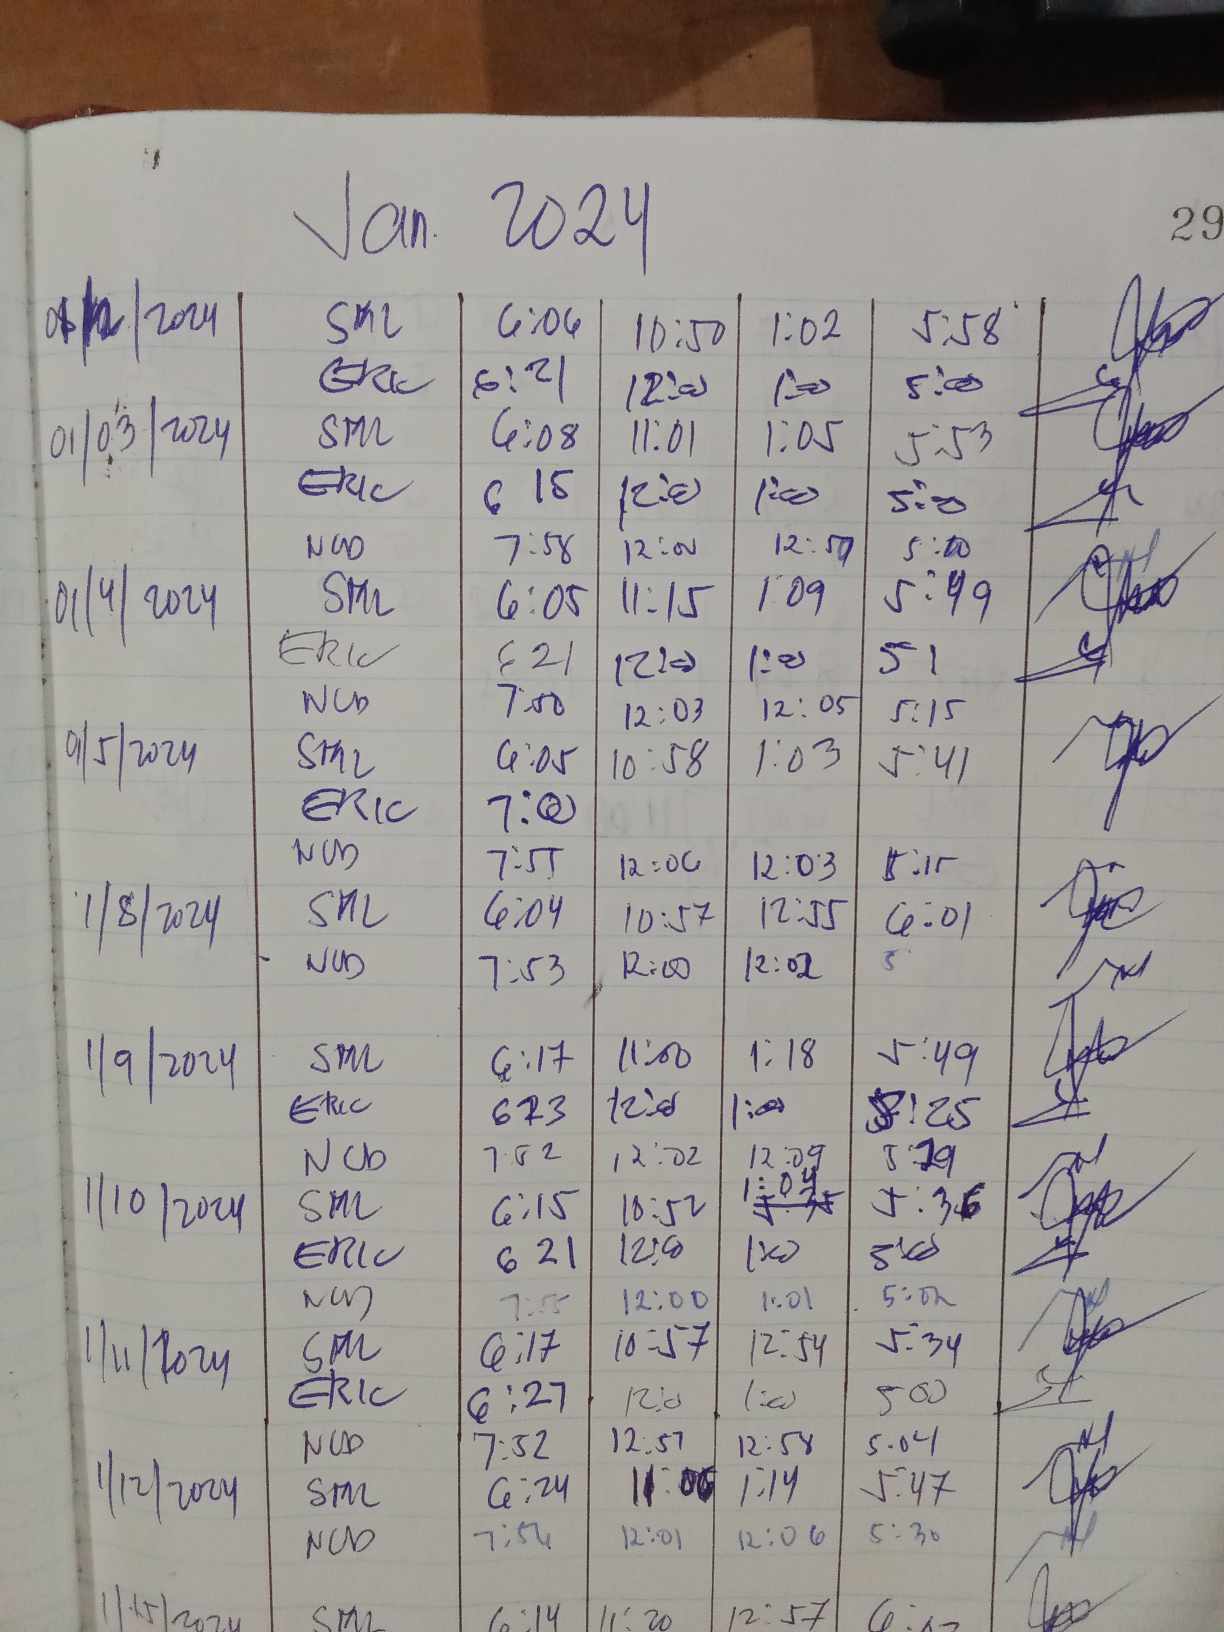 Jan. 2024
29
/2024 SML 6:06 10:50 1:02 5:58
ERIC 6:21 12:00 1:00 5:00
01/03/2024 SML 6:08 11:01 1:05 5:53
ERIC 6 15 12:00 1:00 5:00
NCD 7:58 12:00 12:59 5:00
01/4/2024 SML 6:05 11:15 1:09 5:49
ERIC 6 21 12:00 1:00 5 1
NCD 7:50 12:03 12:05 5:15
01/5/2024 SML 6:05 10:58 1:03 5:41
ERIC 7:00
NCD 7:55 12:06 12:03 5:15
1/8/2024 SML 6:04 10:57 12:55 6:01
NCD 7:53 12:00 12:02 5
1/9/2024 SML 6:17 11:00 1:18 5:49
ERIC 6 23 12:00 1:00 5:25
NCD 7:52 12:02 12:09
1/10/2024 SML 6:15 10:52 1:04 5:36
ERIC 6 21 12:00 1:00 5:00
NCD 7:55 12:00 1:01 5:02
1/11/2024 SML 6:17 10:57 12:54 5:34
ERIC 6:27 12:0 1:00 5 00
NCD 7:52 12:57 12:58 5:04
1/12/2024 SML 6:24 11:06 1:14 5:47
NCD 7:54 12:01 12:06 5:30
1/15/2024 SML 6:14 11:20 12:57